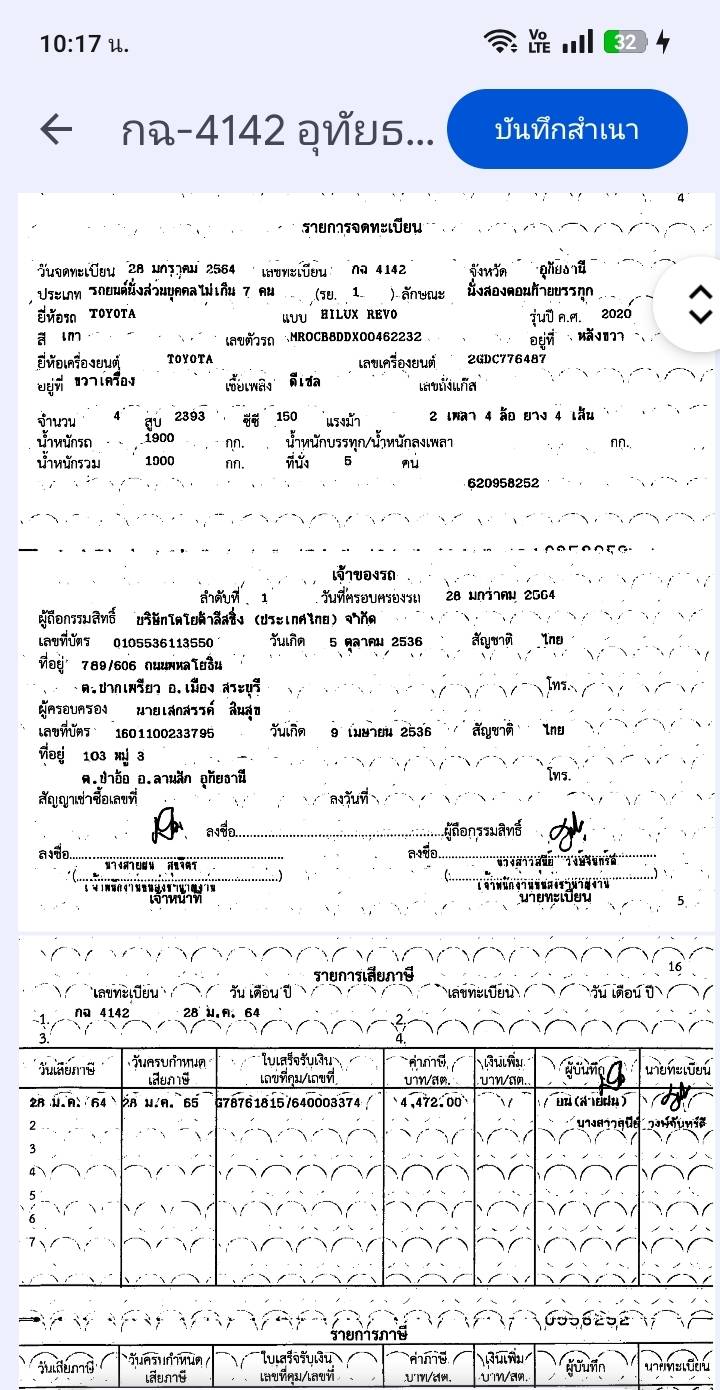 10:17 น.
Vo LTE 32
กฉ-4142 อุทัยธ...
บันทึกสำเนา
4
รายการจดทะเบียน
วันจดทะเบียน 28 มกราคม 2564 เลขทะเบียน กฉ 4142 จังหวัด อุทัยธานี
ประเภท รถยนต์นั่งส่วนบุคคลไม่เกิน 7 คน (รย. 1 ) ลักษณะ นั่งสองตอนท้ายบรรทุก
ยี่ห้อรถ TOYOTA แบบ HILUX REVO รุ่นปี ค.ศ. 2020
สี เทา เลขตัวรถ MROCB8DDX00462232 อยู่ที่ หลังขวา
ยี่ห้อเครื่องยนต์ TOYOTA เลขเครื่องยนต์ 2GDC776487
อยู่ที่ ขวาเครื่อง เชื้อเพลิง ดีเซล เลขถังแก๊ส
จำนวน 4 สูบ 2393 ซีซี 150 แรงม้า 2 เพลา 4 ล้อ ยาง 4 เส้น
น้ำหนักรถ 1900 กก. น้ำหนักบรรทุก/น้ำหนักลงเพลา กก.
น้ำหนักรวม 1900 กก. ที่นั่ง 5 คน
620958252
เจ้าของรถ
ลำดับที่ 1 วันที่ครอบครองรถ 28 มกราคม 2564
ผู้ถือกรรมสิทธิ์ บริษัทโตโยต้าลีสซิ่ง (ประเทศไทย) จำกัด
เลขที่บัตร 0105536113550 วันเกิด 5 ตุลาคม 2536 สัญชาติ ไทย
ที่อยู่ 789/606 ถนนพหลโยธิน
ต.ปากเพรียว อ.เมือง สระบุรี โทร.
ผู้ครอบครอง นายเสกสรรค์
เลขที่บัตร 1601100233795 วันเกิด 9 เมษายน 2536 สัญชาติ ไทย
ที่อยู่ 103 หมู่ 3
ต.ป่าอ้อ อ.ลานสัก อุทัยธานี โทร.
สัญญาเช่าซื้อเลขที่ ลงวันที่
ลงชื่อ ผู้ถือกรรมสิทธิ์
ลงชื่อ ลงชื่อ
นางสายฝน
เจ้าพนักงานขนส่งชำนาญงาน เจ้าพนักงานขนส่งชำนาญงาน
เจ้าหน้าที่ นายทะเบียน
5
16
รายการเสียภาษี
เลขทะเบียน วัน เดือน ปี เลขทะเบียน วัน เดือน ปี
1. กฉ 4142 28 ม.ค. 64 2.
3. 4.
วันเสียภาษี วันครบกำหนดเสียภาษี ใบเสร็จรับเงิน เลขที่คุม/เลขที่ ค่าภาษี บาท/สต. เงินเพิ่ม บาท/สต. ผู้บันทึก นายทะเบียน
28 ม.ค. 64 28 ม.ค. 65 G78761815/640003374 4,472.00 ยน(สายฝน)
2 นางสาวสุนีย์ วงษ์จันทร์ดี
3
4
5
6
7
รายการภาษี
วันเสียภาษี วันครบกำหนดเสียภาษี ใบเสร็จรับเงิน เลขที่คุม/เลขที่ ค่าภาษี บาท/สต. เงินเพิ่ม บาท/สต. ผู้บันทึก นายทะเบียน